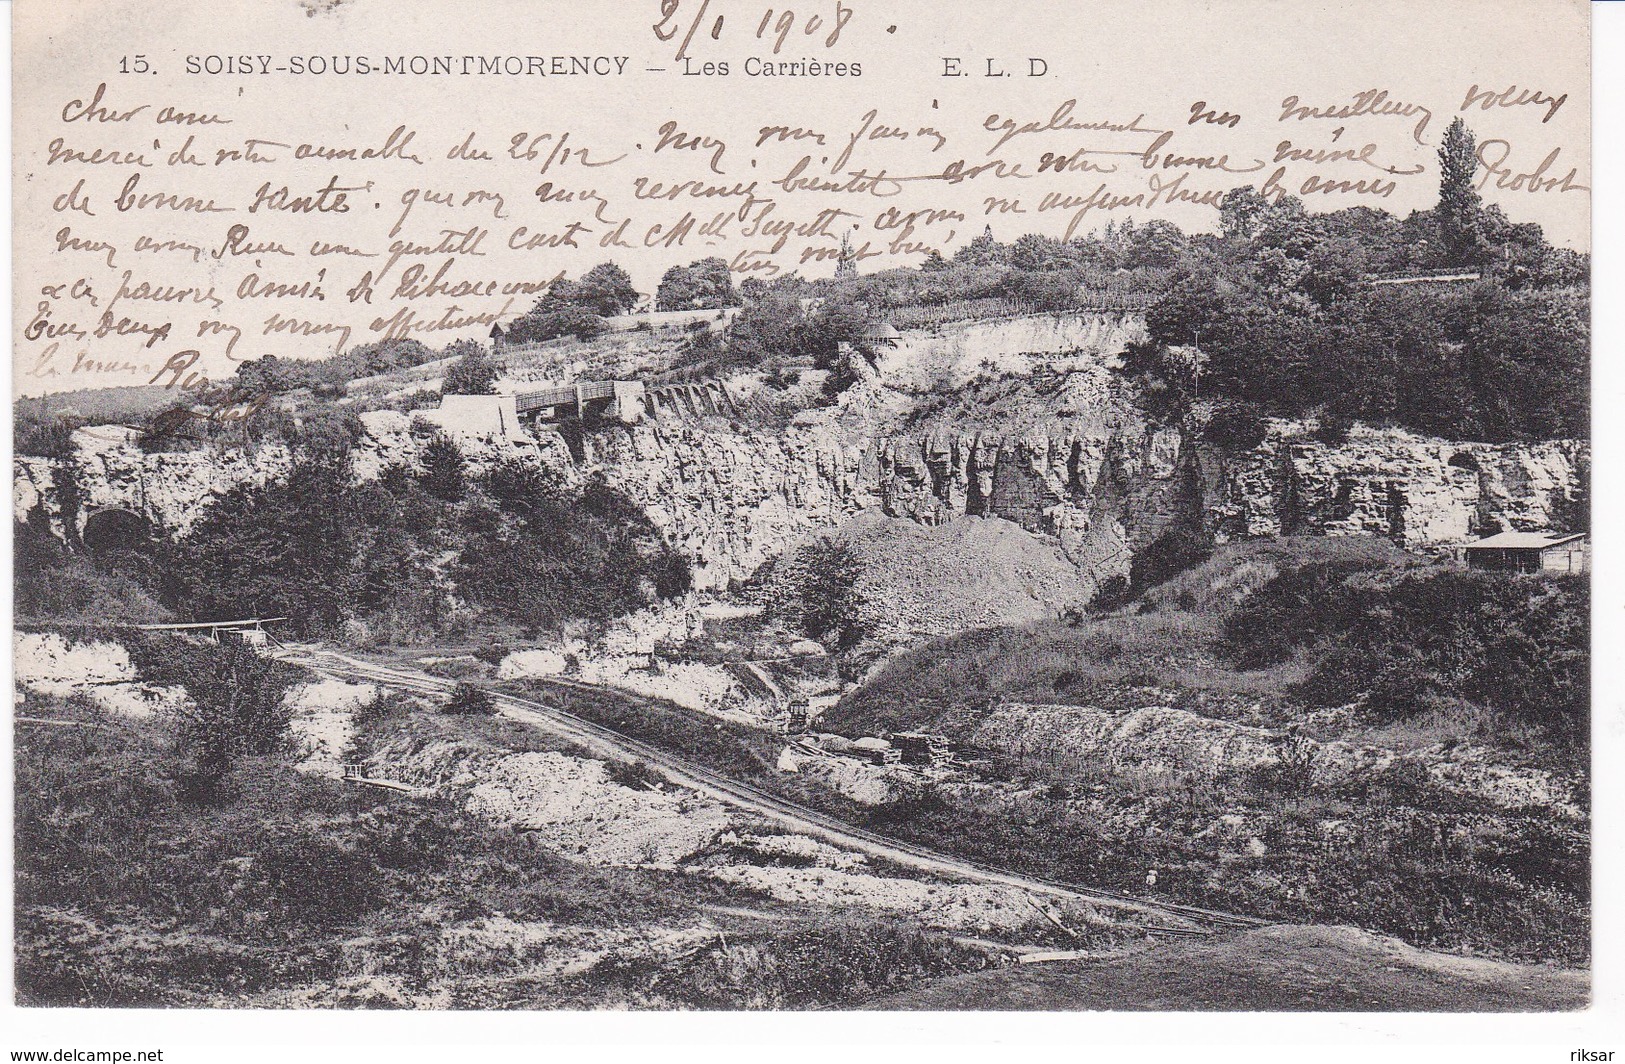 2/1 1908.
15. SOISY-SOUS-MONTMORENCY – Les Carrières E. L. D.
Cher ami
merci de votre aimable du 26/12. Nous vous faisons également nos meilleurs voeux
de bonne santé. que vous nous reveniez bientôt avec votre bonne mine. Probst
nous avons Reçu une gentille carte de Mlle Suzette. avons vu aujourd'hui les amis
pauvres amis de très bien
Tous Deux vous serrons affectueust
la main
www.delcampe.net
riksar